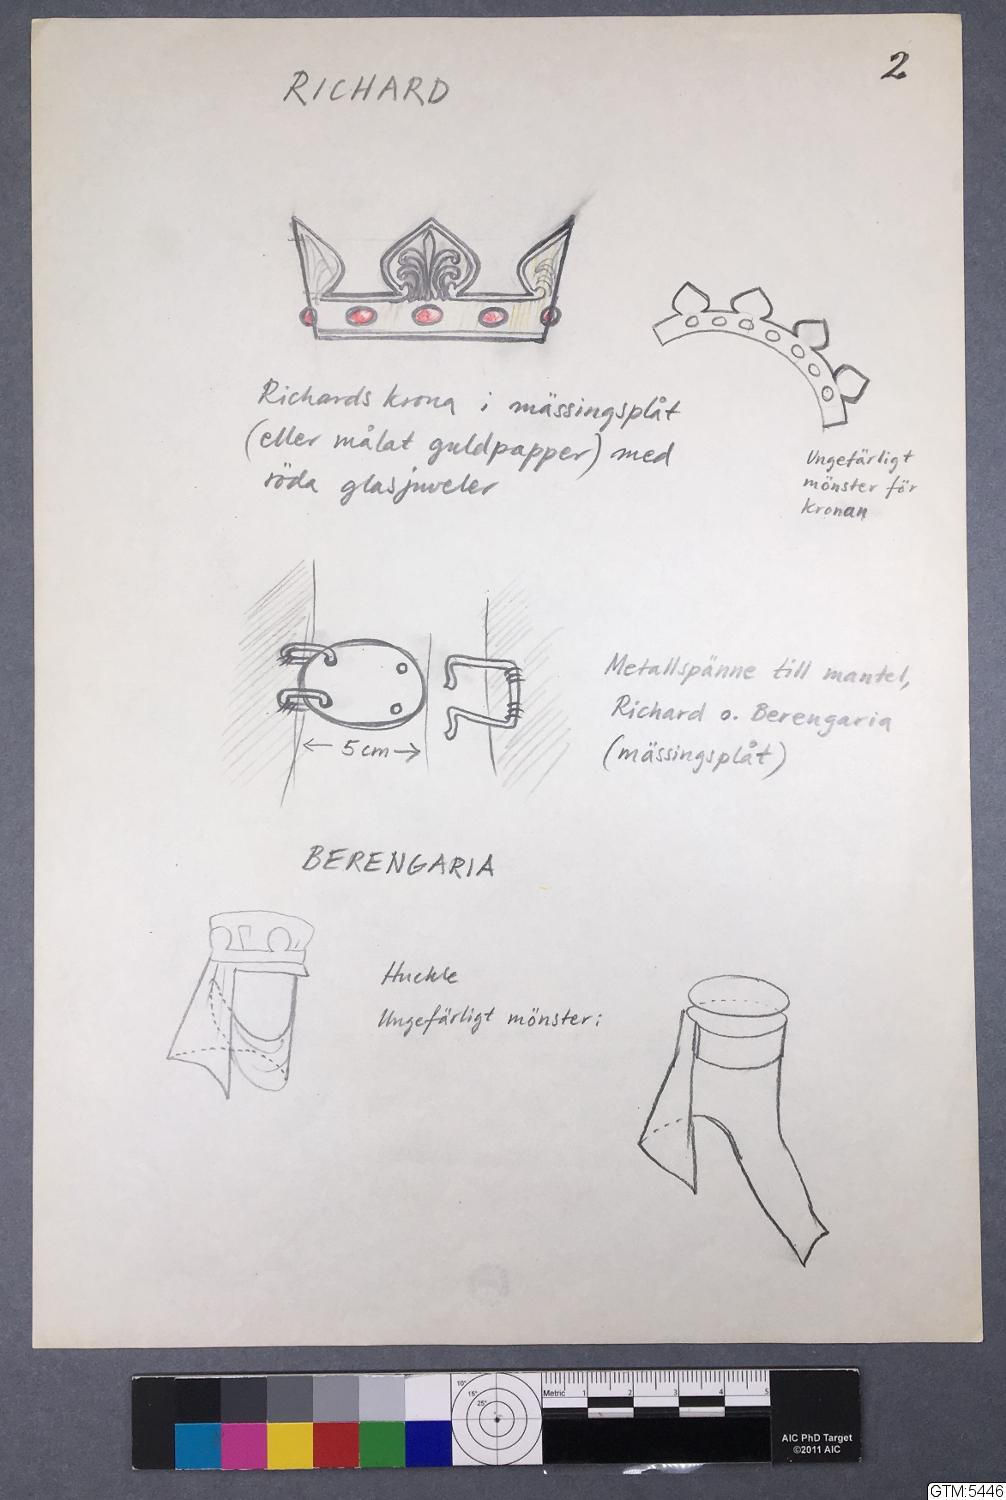 2
RICHARD
Richards krona i mässingsplåt
(eller målat guldpapper) med
röda glasjuveler
Ungefärligt
mönster för
kronan
Metallspänne till mantel,
Richard o. Berengaria
(mässingsplåt)
← 5 cm →
BERENGARIA
Huckle
Ungefärligt mönster:
10°
15°
25°
Metric 1 2 3 4 5
AIC PhD Target
©2011 AIC
GTM:5446